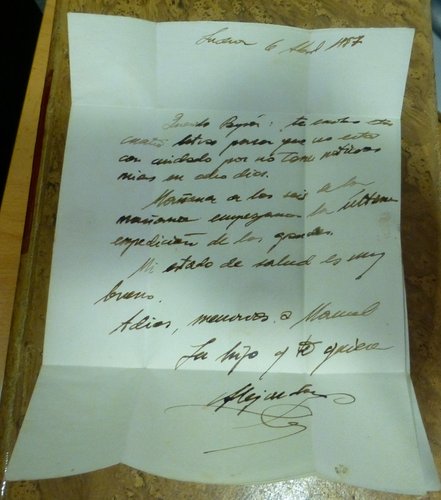 6 Abril 1957
Querido Papá: te envio estas
cuatro letras para que no estes
con cuidado por no tener noticias
mias en ocho dias.
Mañana a las seis de la
mañana empezamos la ultima
expedición de las grandes.
Mi estado de salud es muy
bueno.
Adios, memorias a Manuel
Tu hijo q te quiere
Alejandro